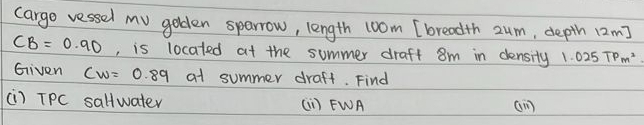 Cargo vessel mv golden sparrow, length 100m [breadth 24m, depth 12m]
CB = 0.90, is located at the summer draft 8m in density 1.025 TPm².
Given CW= 0.89 at summer draft. Find
(i) TPC saltwater (ii) FWA (iii)